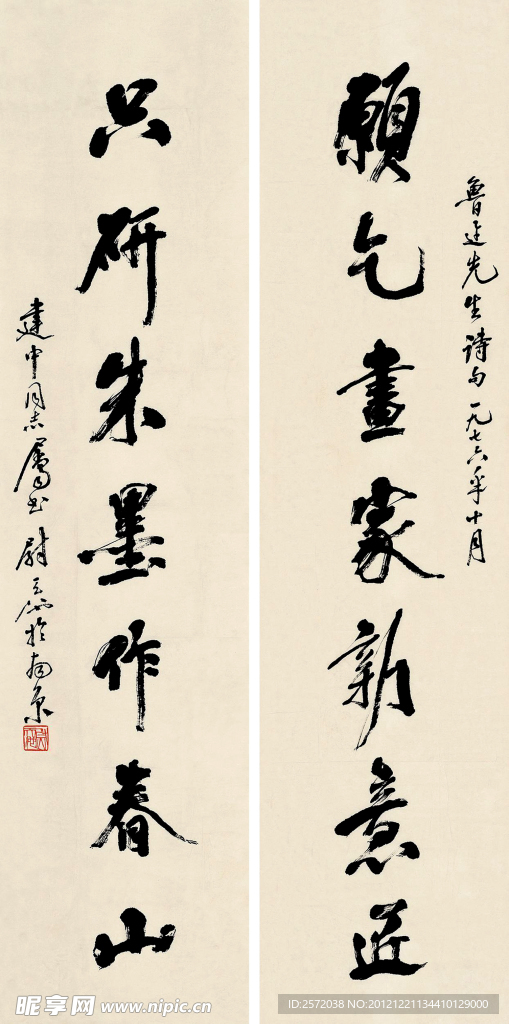 魯迅先生詩句 一九七六年十月
願乞畫家新意匠
只研朱墨作春山
建中同志屬书 尉天池於南京
昵享网 www.nipic.cn
ID:2572038 NO:20121221134410129000